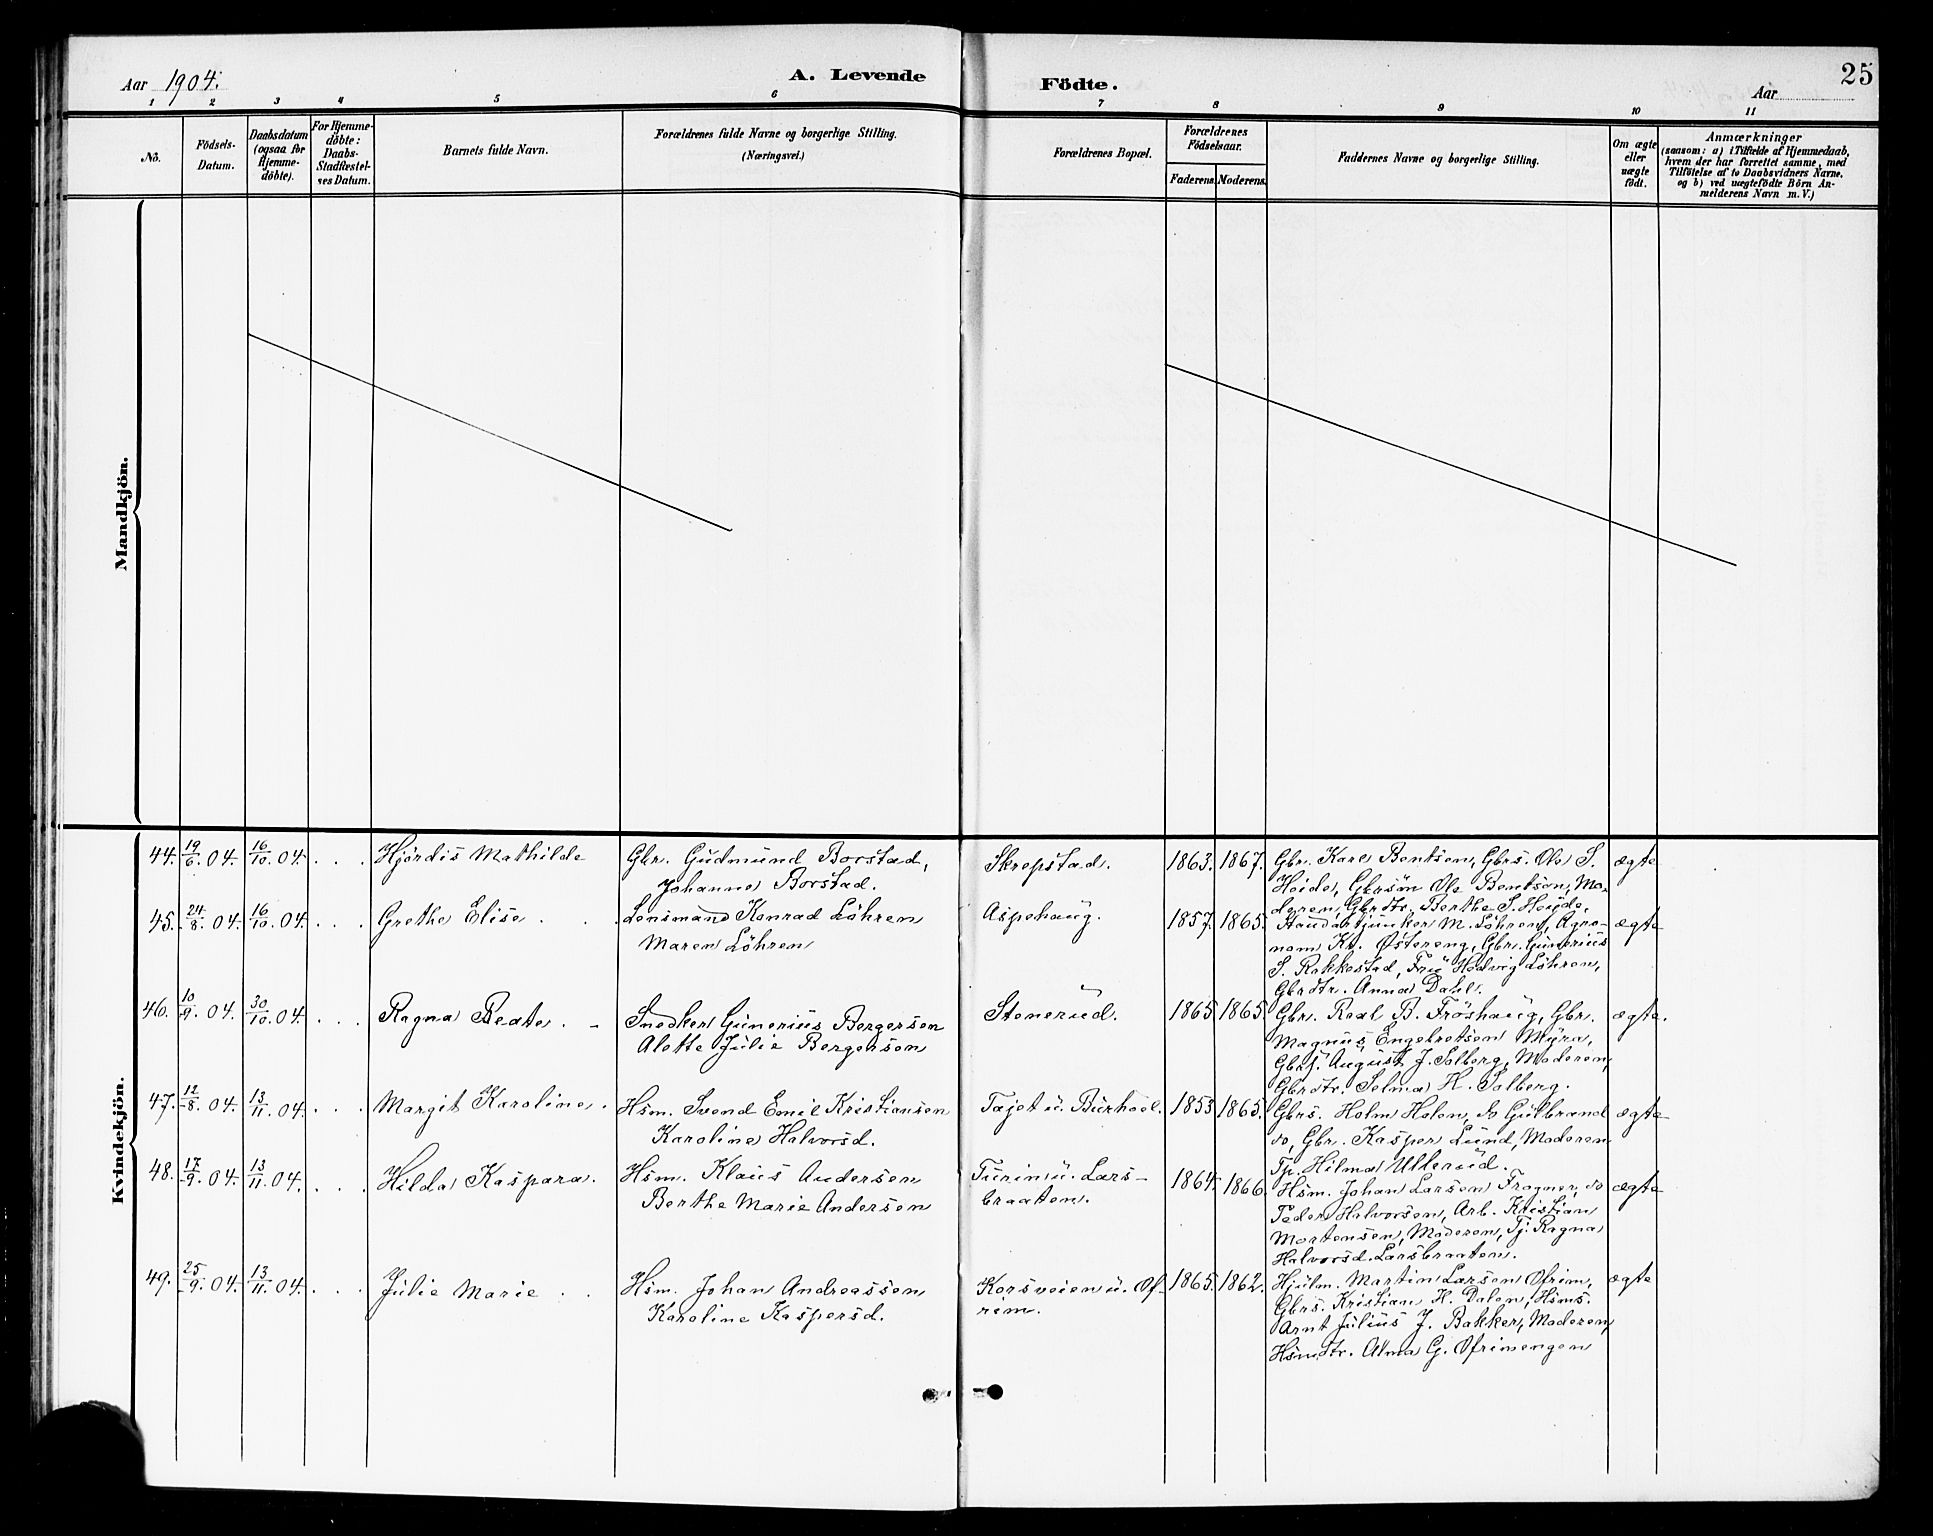 Aar 1904.
A. Levende
Födte.
25
Aar
1 2 3 4 5 6 7 8 9 10 11
No.
Födsels-
Datum.
Daabsdatum
(ogsaa for
Hjemme-
döbte).
For Hjemme-
döbte:
Daabs-
Stadfæstel-
ses Datum.
Barnets fulde Navn.
Forældrenes fulde Navne og borgerlige Stilling.
(Næringsvei.)
Forældrenes Bopæl.
Forældrenes
Födselsaar.
Faderens. Moderens.
Faddernes Navne og borgerlige Stilling.
Om ægte
eller
uægte
födt.
Anmærkninger
(saasom: a) i Tilfælde af Hjemmedaab,
hvem der har forrettet samme, med
Tilföielse af to Daabsvidners Navne,
og b) ved uægtefödte Börn An-
melderens Navn m. V.)
Mandkjön.
Kvindekjön.
44. 19/6. 04. 16/10. 04. . . . Hjördis Mathilde
Gbr. Gudmund Borstad,
Johanne Borstad.
Skrepstad.
1863. 1867.
Gbr. Kare Bentsen, Gbrs. Ole S.
Heide, Gbrsön Ole Bentsen, Mo-
deren, Gbrdtr. Berthe S. Høyde.
ægte
45. 24/8. 04. 16/10. 04. . . . Grethe Elise . .
Lensmand Konrad Löhren
Maren Löhren
Aspehaug.
1857. 1865.
M. Löhren, Agro-
nom Kr. Østereng, Gbr. Gunerius
S. Rakkestad, Fru Hedvig Löhren,
Gbrdtr. Anna Dahl.
ægte
46. 10/9. 04. 30/10. 04. . . . Ragna Beate . -
Snedker Gunerius Bergersen
Alette Julie Bergersen
Stenerud.
1865 1865.
Gbr. Real B. Fröshaug, Gbr.
Magnus Engebretsen Myra,
Gbrs. August J. Solberg, Moderen,
Gbrdtr. Selma H. Solberg.
ægte.
47. 12/8. 04. 13/11. 04. . . . Margit Karoline .
Hsm. Svend Emil Kristiansen
Karoline Halvorsd.
Tajet u. Burhoel.
1853 1865.
Gbrs. Holm Holen, do Gulbrand
do, Gbr. Kasper Lund, Moderen
Tp. Hilma Ullerud.
ægte
48. 17/9. 04. 13/11. 04. . . . Hilda Kaspara.
Hsm. Klaus Andersen
Berthe Marie Andersen
Turin u. Lars-
braaten.
1864. 1866.
Hsm. Johan Larsen Fragner, do
Peder Halvorsen, Arb. Kristian
Mortensen, Moderen, Tj. Ragna
Halvorsd. Larsbraaten.
ægte
49. 25/9. 04. 13/11. 04. . . . Julie Marie . .
Hsm. Johan Andreassen
Karoline Kaspersd.
Korsveien u. Øf-
rim.
1865. 1862.
Hjulm. Martin Larsen Øfrim,
Gbrs. Kristian H. Dalen, Hsms.
Arnt Julius J. Bakker, Moderen,
Hsmdtr. Alma G. Øfrimengen
ægte